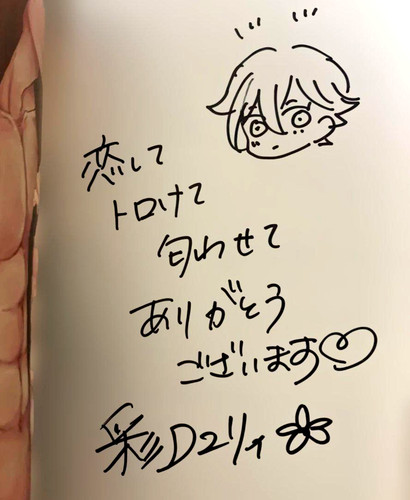 恋して
トロけて
匂わせて
ありがとう
ございます♡
彩